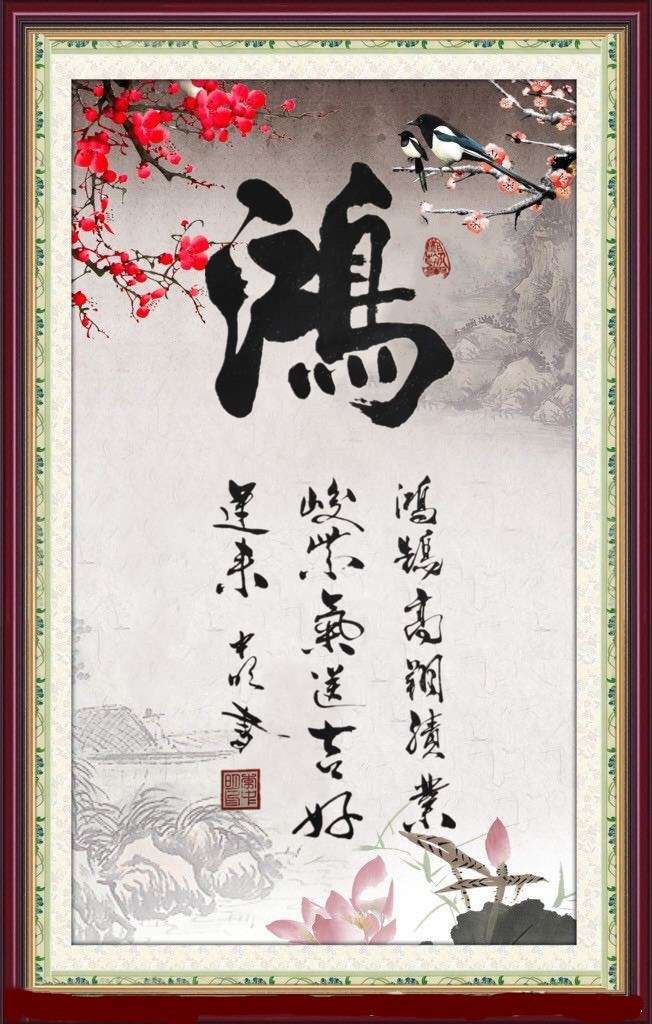 鴻
鴻鵠高翔績業
峻紫氣送吉好
運來 中明書